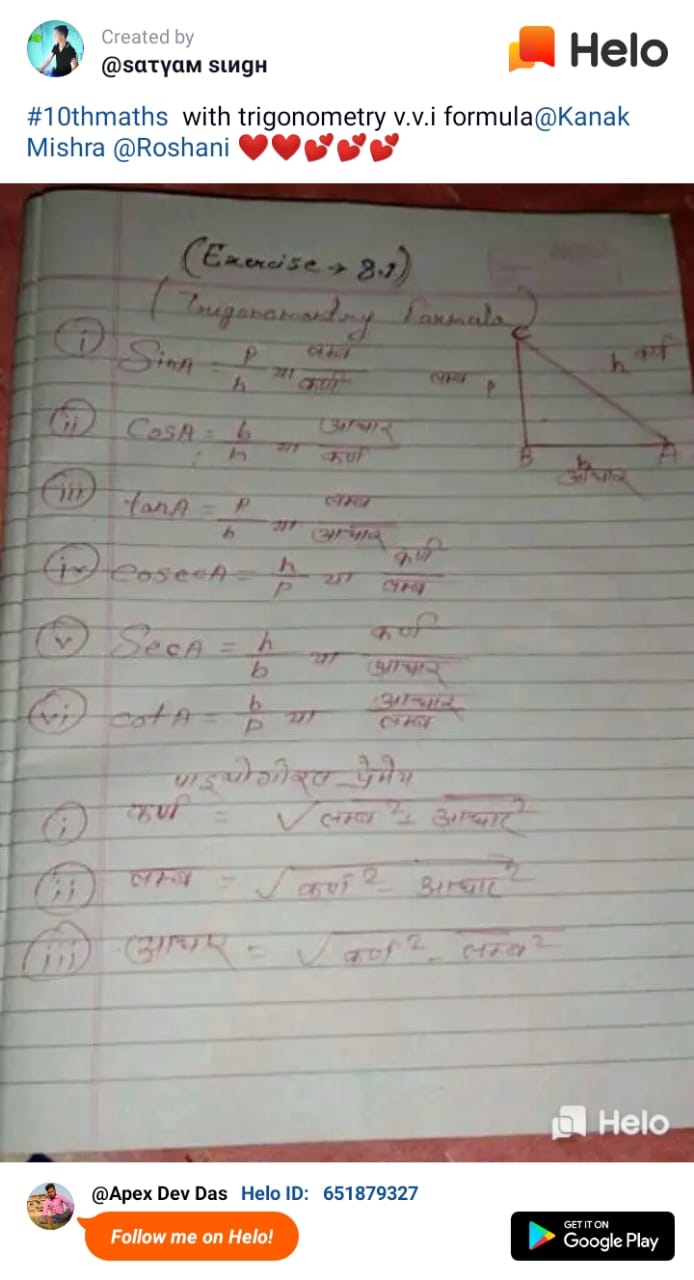 Created by
@SATYAM SINGH
Helo
#10thmaths with trigonometry v.v.i formula@Kanak
Mishra @Roshani ❤️❤️💕💕💕
(Exercise → 8.1)
(Trigonomandry Farmula)
(i) SinA = p/h या लम्ब/कर्ण
(ii) CosA = b/h या आधार/कर्ण
(iii) tanA = p/b या लम्ब/आधार
(iv) cosecA = h/p या कर्ण/लम्ब
(v) SecA = h/b या कर्ण/आधार
(vi) cotA = b/p या आधार/लम्ब
C
h कर्ण
लम्ब p
B b A
आधार
(i) कर्ण = √लम्ब² + आधार²
(ii) लम्ब = √कर्ण² - आधार²
(iii) आधार = √कर्ण² - लम्ब²
Helo
@Apex Dev Das Helo ID: 651879327
Follow me on Helo!
GET IT ON
Google Play